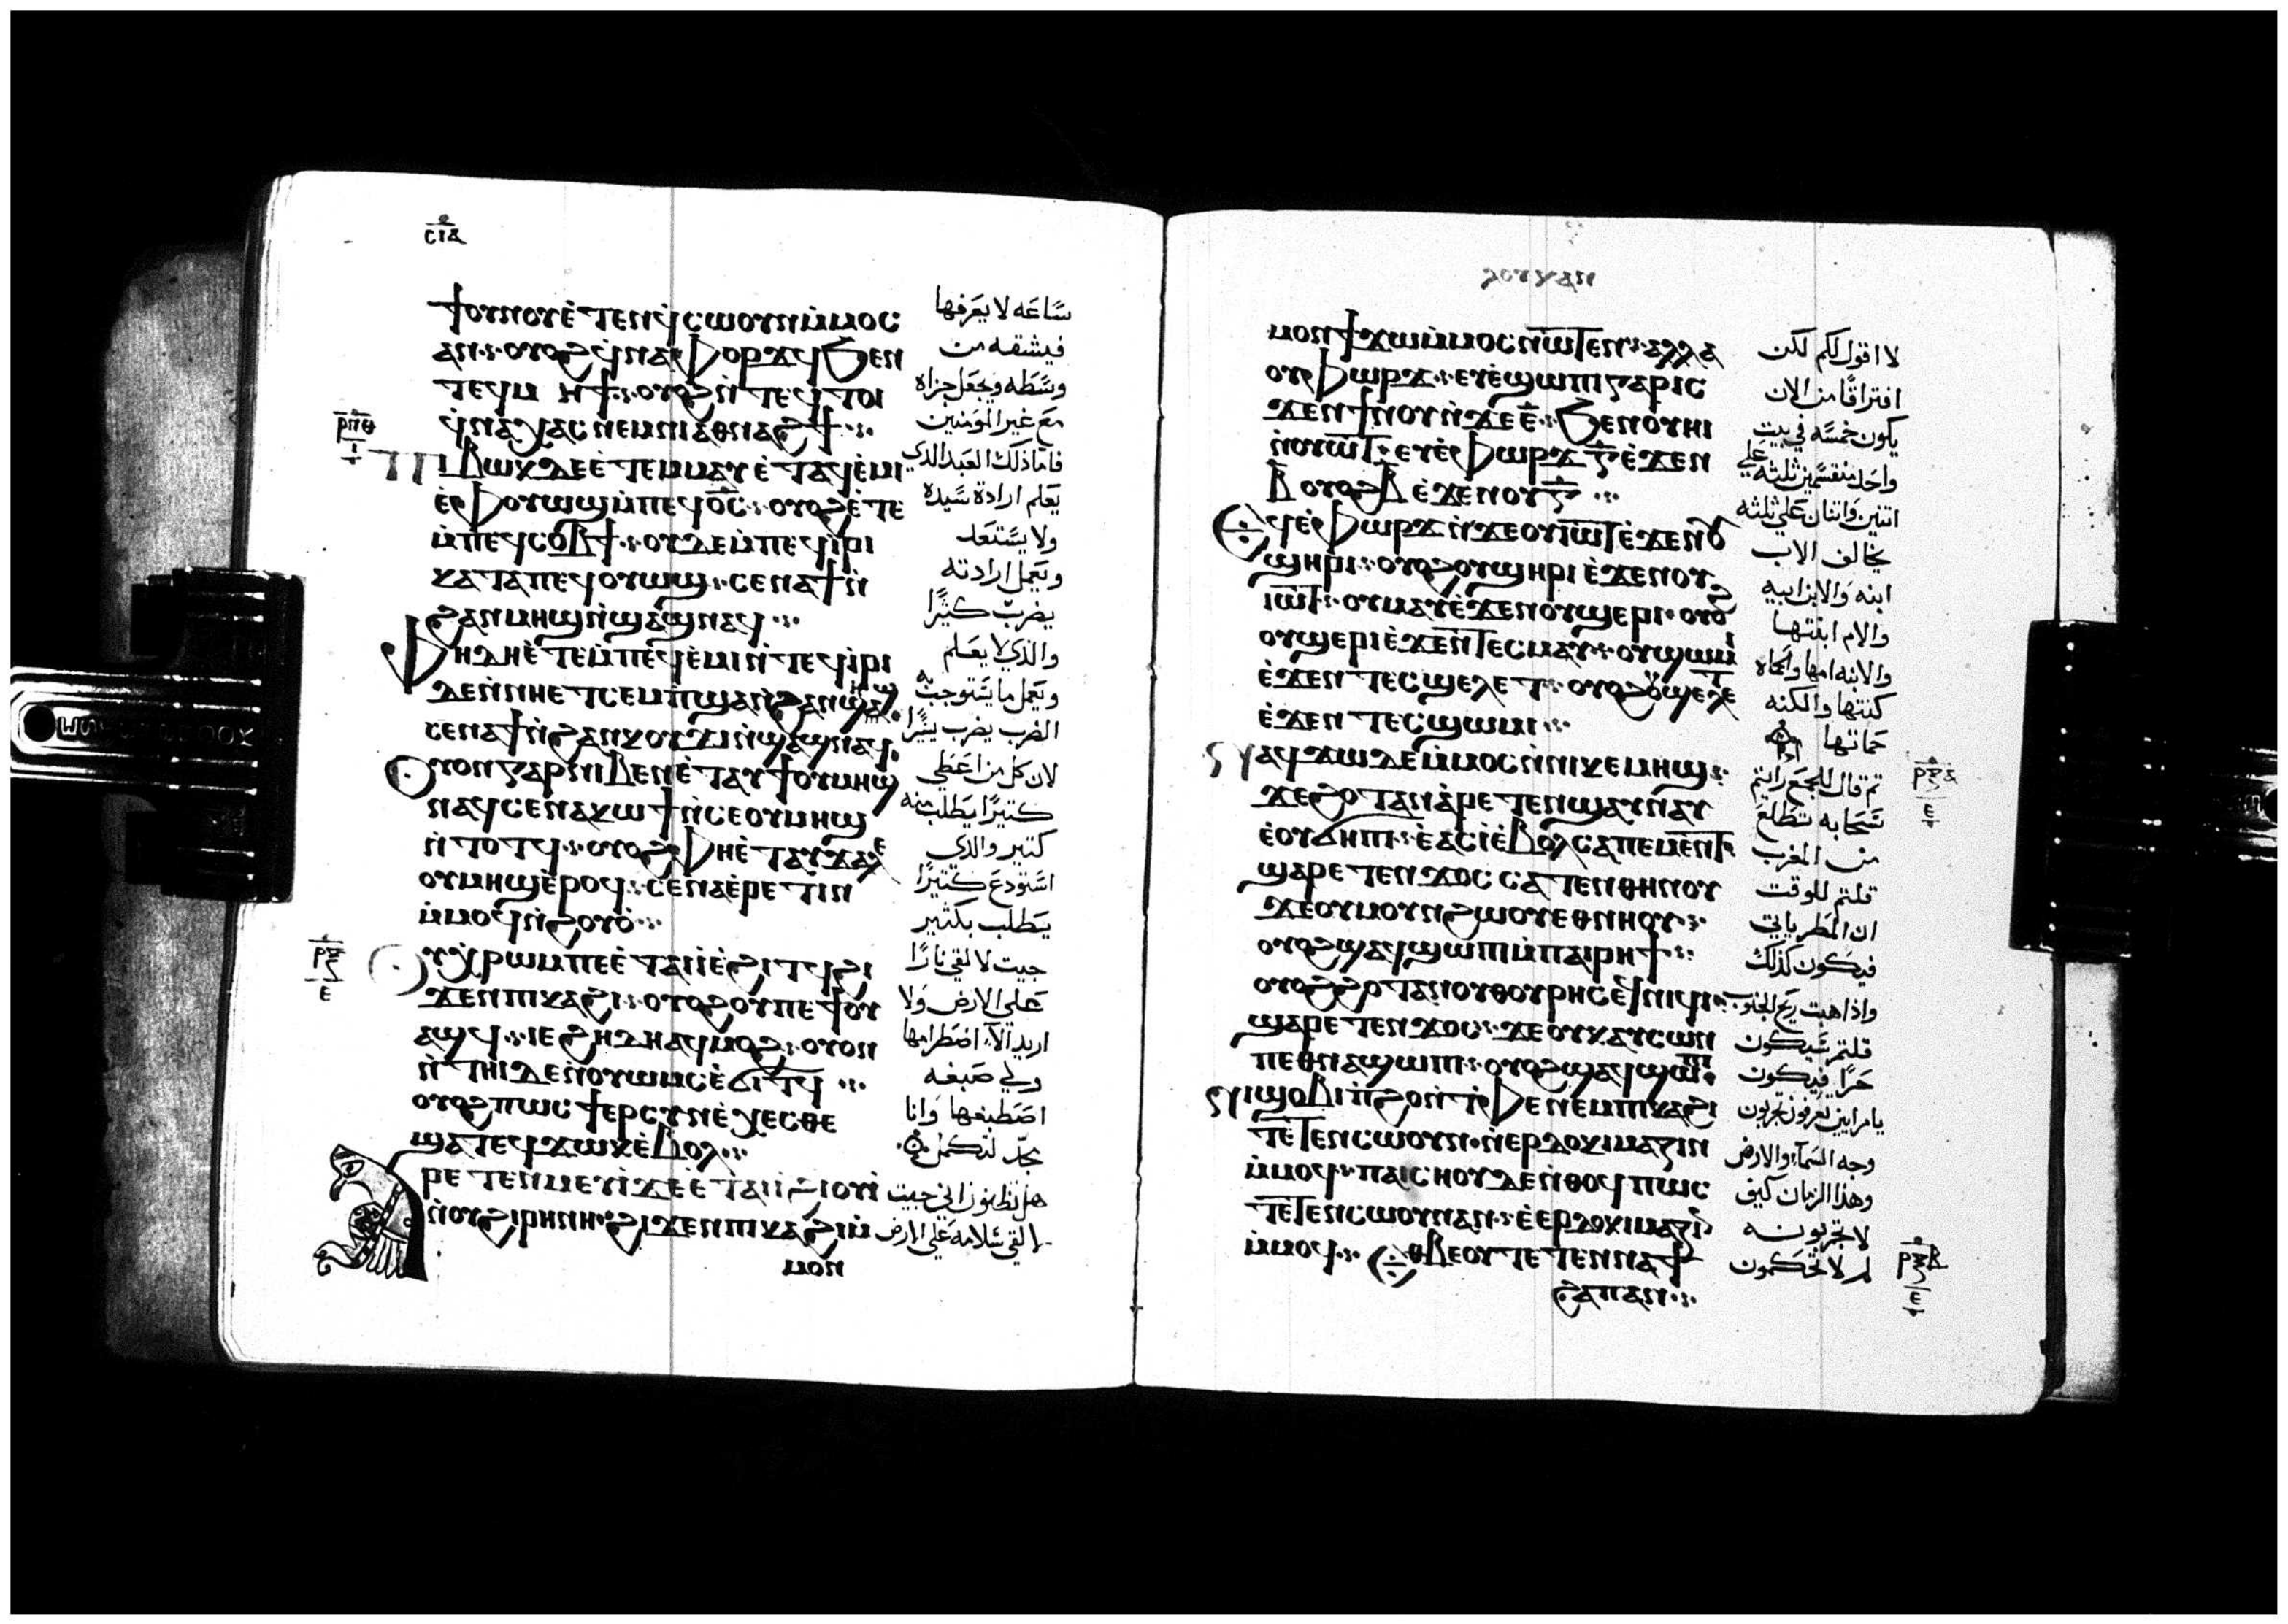 ⲥⲓⲁ
ϯⲟⲩⲛⲟⲩ ⲉ̀ⲧⲉⲛϥ̀ⲥⲱⲟⲩⲛ ⲙ̀ⲙⲟⲥ
ⲁⲛ· ⲟⲩⲟϩ ϥ̀ⲛⲁⲫⲟⲣϫϥ ϧⲉⲛ
ⲧⲉϥⲙⲏϯ· ⲟⲩⲟϩ ⲛ̀ⲧⲉϥⲧⲟⲓ
ϥ̀ⲛⲁⲭⲁⲥ ⲛⲉⲙ ⲛⲓⲁⲑⲛⲁϩϯ·
ⲡⲓⲃⲱⲕ ⲇⲉ ⲉ̀ⲧⲉⲙⲙⲁⲩ ⲉ̀ⲧⲁϥⲉ̀ⲙⲓ
ⲉ̀ⲫⲟⲩⲱϣ ⲙ̀ⲡⲉϥⲟ̅ⲥ̅· ⲟⲩⲟϩ ⲉ̀ⲧⲉ
ⲙ̀ⲡⲉϥⲥⲟⲃϯ· ⲟⲩⲇⲉ ⲙ̀ⲡⲉϥⲓⲣⲓ
ⲕⲁⲧⲁ ⲡⲉϥⲟⲩⲱϣ· ⲥⲉⲛⲁϯ ⲛ̀
ϩⲁⲛⲙⲏϣ ⲛ̀ϣⲁϣ ⲛⲁϥ·
ⲫⲏ ⲇⲏ ⲉ̀ⲧⲉⲙ̀ⲡⲉϥⲉ̀ⲙⲓ ⲛ̀ⲧⲉϥⲓⲣⲓ
ⲇⲉ ⲛ̀ⲛⲏ ⲉⲧⲥⲉⲙⲡ̀ϣⲁ ⲛ̀ϩⲁⲛϣⲁϣ
ⲥⲉⲛⲁϯ ⲛ̀ϩⲁⲛⲕⲟⲩϫⲓ ⲛ̀ϣⲁϣ ⲛⲁϥ·
ⲟⲩⲟⲛ ⲅⲁⲣ ⲛⲓⲃⲉⲛ ⲉ̀ⲧⲁⲩϯ ⲟⲩⲙⲏϣ
ⲛⲁϥ ⲥⲉⲛⲁⲕⲱϯ ⲛ̀ⲥⲉ ⲟⲩⲙⲏϣ
ⲛ̀ⲧⲟⲧϥ· ⲟⲩⲟϩ ⲫⲏ ⲉ̀ⲧⲁⲩⲭⲁⲉ
ⲟⲩⲙⲏϣ ⲉ̀ⲣⲟϥ· ⲥⲉⲛⲁⲉ̀ⲣⲉⲧⲓⲛ
ⲙ̀ⲙⲟϥ ⲛ̀ϩⲟⲩⲟ̀·
ⲟⲩⲭ̀ⲣⲱⲙ ⲡⲉ ⲉ̀ⲧⲁⲓⲓ̀ ⲉ̀ϩⲓⲧϥ ϩⲓ
ϫⲉⲛ ⲡⲓⲕⲁϩⲓ· ⲟⲩⲟϩ ⲟⲩ ⲡⲉ ϯⲟⲩ
ⲁϣϥ· ⲓⲉ ϩⲏⲇⲏ ⲁϥⲙⲟϩ· ⲟⲩⲟⲛ
ⲛ̀ⲧⲏⲓ ⲇⲉ ⲛ̀ⲟⲩⲱⲙⲥ ⲉ̀ϭⲓⲧϥ ·
ⲟⲩⲟϩ ⲡⲱⲥ ϯⲉⲣⲥⲩⲛⲉ̀ⲭⲉⲥⲑⲉ
ϣⲁⲧⲉϥϫⲱⲕ ⲉ̀ⲃⲟⲗ·
ⲣⲉⲧⲉⲛⲙⲉⲩⲓ̀ ϫⲉ ⲉ̀ⲧⲁⲓⲓ̀ ϩⲓⲟⲩⲓ̀
ⲛ̀ⲟⲩϩⲓⲣⲏⲛⲏ ϩⲓϫⲉⲛ ⲡⲓⲕⲁϩⲓ ⲙ̀
ⲙⲟⲛ
ⲣⲡⲑ
ⲓ
ⲣⲝ
ⲉ
ساعه لا يعرفها
فيشقه من
وسطه ويجعل جزاه
مع غير المومنين
فاما ذلك العبد الذي
يعلم ارادة سيده
ولا يستعد
ويعمل ارادته
يضرب كثيرًا
والذي لا يعلم
ويعمل ما يستوجب به
الضرب يضرب يسيرًا
لان كل من اعطي
كتيرًا يطلب منه
كتير والذي
استودع كتيرًا
يطلب بكثير
جيت لالقي نارًا
على الارض ولا
اريد الا اضطرامها
ولي صبغه
اصطبغها وانا
مجد لتكمل
هل تظنون اني جيت
لالقي سلامه على الارض
ⲗⲟⲩⲕⲁⲛ
ⲙⲟⲛ ϯϫⲱ ⲙ̀ⲙⲟⲥ ⲛⲱⲧⲉⲛ· ⲁⲗⲗⲁ
ⲟⲩⲫⲱⲣϫ· ⲉⲩⲉ̀ϣⲱⲡⲓ ⲅⲁⲣ ⲓⲥ
ϫⲉⲛ ϯⲛⲟⲩ ⲛ̀ϫⲉ ⲉ̅· ϧⲉⲛ ⲟⲩⲏⲓ
ⲛ̀ⲟⲩⲱⲧ· ⲉⲩⲉ̀ⲫⲱⲣϫ ⲅ̅ ⲉ̀ϫⲉⲛ
ⲃ̅ ⲟⲩⲟϩ ⲃ̅ ⲉ̀ϫⲉⲛ ⲟⲩⲅ̅ ·
ⲉϥⲉ̀ⲫⲱⲣϫ ⲛ̀ϫⲉ ⲟⲩⲓⲱⲧ ⲉ̀ϫⲉⲛ ⲟⲩ
ϣⲏⲣⲓ· ⲟⲩⲟϩ ⲟⲩϣⲏⲣⲓ ⲉ̀ϫⲉⲛ ⲟⲩ
ⲓⲱⲧ· ⲟⲩⲙⲁⲩ ⲉ̀ϫⲉⲛ ⲟⲩϣⲉⲣⲓ· ⲟⲩⲟϩ
ⲟⲩϣⲉⲣⲓ ⲉ̀ϫⲉⲛ ⲧⲉⲥⲙⲁⲩ· ⲟⲩϣⲱⲙⲓ
ⲉ̀ϫⲉⲛ ⲧⲉⲥϣⲉⲗⲉⲧ· ⲟⲩⲟϩ ⲟⲩϣⲉⲗⲉⲧ
ⲉ̀ϫⲉⲛ ⲧⲉⲥϣⲱⲙⲓ·
ⲛⲁϥϫⲱ ⲇⲉ ⲙ̀ⲙⲟⲥ ⲛ̀ⲛⲓⲕⲉⲙⲏϣ·
ϫⲉ ϩⲟⲧⲁⲛ ⲁ̀ⲣⲉⲧⲉⲛϣⲁⲛⲛⲁⲩ
ⲉ̀ⲟⲩϭⲏⲡⲓ· ⲉ̀ⲁⲥⲓ̀ ⲉ̀ⲃⲟⲗ ⲥⲁⲡⲉⲙⲉⲛⲧ·
ϣⲁⲣⲉⲧⲉⲛϫⲟⲥ ⲥⲁⲧⲉⲛⲑⲏⲛⲟⲩ
ϫⲉ ⲟⲩⲙⲟⲩⲛϩⲱⲟⲩ ⲉⲑⲛⲏⲟⲩ·
ⲟⲩⲟϩ ϣⲁϥϣⲱⲡⲓ ⲙ̀ⲡⲁⲓⲣⲏϯ·
ⲟⲩⲟϩ ϩⲟⲧⲁⲛ ⲟⲩⲑⲟⲩⲣⲏⲥ ⲉϥⲛⲓϥⲓ·
ϣⲁⲣⲉⲧⲉⲛϫⲟⲥ· ϫⲉ ⲟⲩⲕⲁⲩⲥⲱⲛ
ⲡⲉⲑⲛⲁϣⲱⲡⲓ· ⲟⲩⲟϩ ϣⲁϥϣⲱⲡⲓ·
ⲛⲓϣⲟⲃⲓ ⲡ̀ϩⲟ ⲛ̀ⲧ̀ⲫⲉ ⲛⲉⲙ ⲡⲕⲁϩⲓ
ⲧⲉⲧⲉⲛⲥⲱⲟⲩⲛ· ⲛ̀ⲉⲣⲇⲟⲕⲓⲙⲁⲍⲓⲛ
ⲙ̀ⲙⲟϥ· ⲡⲁⲓⲥⲏⲟⲩ ⲇⲉ ⲛ̀ⲑⲟϥ ⲡⲱⲥ
ⲧⲉⲧⲉⲛⲥⲱⲟⲩⲛ ⲁⲛ· ⲉ̀ⲉⲣⲇⲟⲕⲓⲙⲁⲍⲓⲛ
ⲙ̀ⲙⲟϥ· ⲉⲑⲃⲉ ⲟⲩ ⲧⲉⲧⲉⲛⲛⲁϯ
ϩⲁⲡ ⲁⲛ·
لا اقول لكم لكن
افتراقًا من الان
يكون خمسه في بيت
واحد منقسمين ثلثه علي
اتنين واتنان علي ثلثه
يخالف الاب
ابنه والابن ابيه
والام ابنتها
والابنه امها والحماه
كنتها والكنه
حماتها
تم قال للجمع رايتم
سحابه تطلع
من المغرب
قلتم للوقت
ان المطر ياتي
فيكون كذلك
واذا هبت ريح الجنوب
قلتم سيكون
حرًا فيكون
يا مرايين تعرفون تجربون
وجه السماء والارض
وهذا الزمان كيف
لا تجربونه
لم لا تحكمون
ⲣⲝⲁ
ⲉ
ⲣⲝⲃ
ⲉ